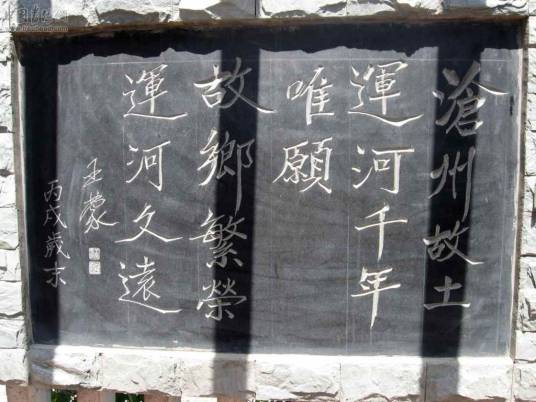 滄州故土
運河千年
唯願
故鄉繁榮
運河久遠
王蒙
丙戌歲末